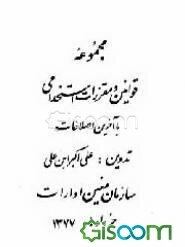 مجموعه
قوانین و مقررات استخدامی
با آخرین اصلاحات
تدوین : علی اکبر ابن علی
سازمان
ادارات
۱۳۷۷
Gisoom
.com